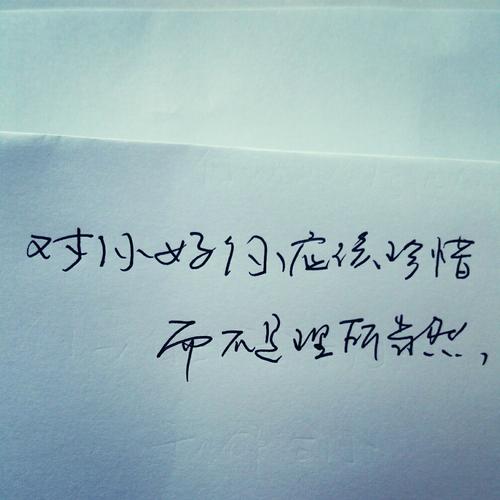 对你好你应该珍惜
而不是理所当然,